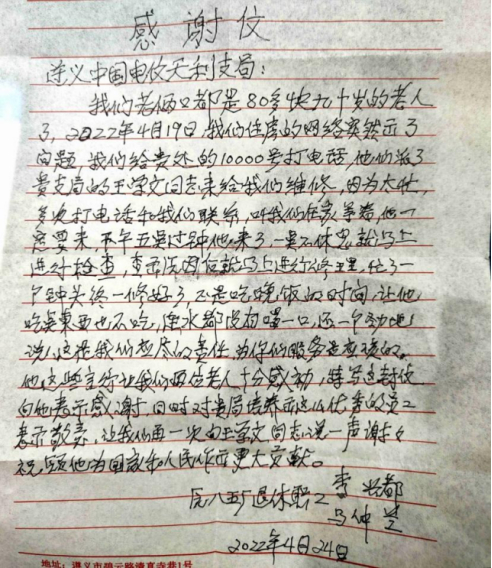 感谢信
遵义中国电信天利支局：
我们老俩口都是80多快九十岁的老人
了，2022年4月19日，我们住房的网络突然示了
问题，我们给贵处的10000号打电话，他们派了
贵支局的王学文同志来给我们维修，因为太忙，
多次打电话和我们联系，叫我们在家等着，他一
定要来，下午五点过钟他来了，一点不休息就马上
进行检查，查出原因后就马上进行修理，忙了一
个钟头终一修好了，正是吃晚饭的时间，让他
吃点东西也不吃，连水都没有喝一口，还一个劲地
说，这是我们应尽的责任，为你们服务是应该的。
他这些言行让我们两位老人十分感动，特写这封信
向他表示感谢，同时对贵局培养出这么优秀的员工
表示敬意，让我们再一次向王学文同志说一声谢谢
祝愿他为国家和人民作出更大贡献。
原八五厂退休职工 李兴都
马仲兰
2022年4月24日
地址：遵义市碧云路清真寺巷1号